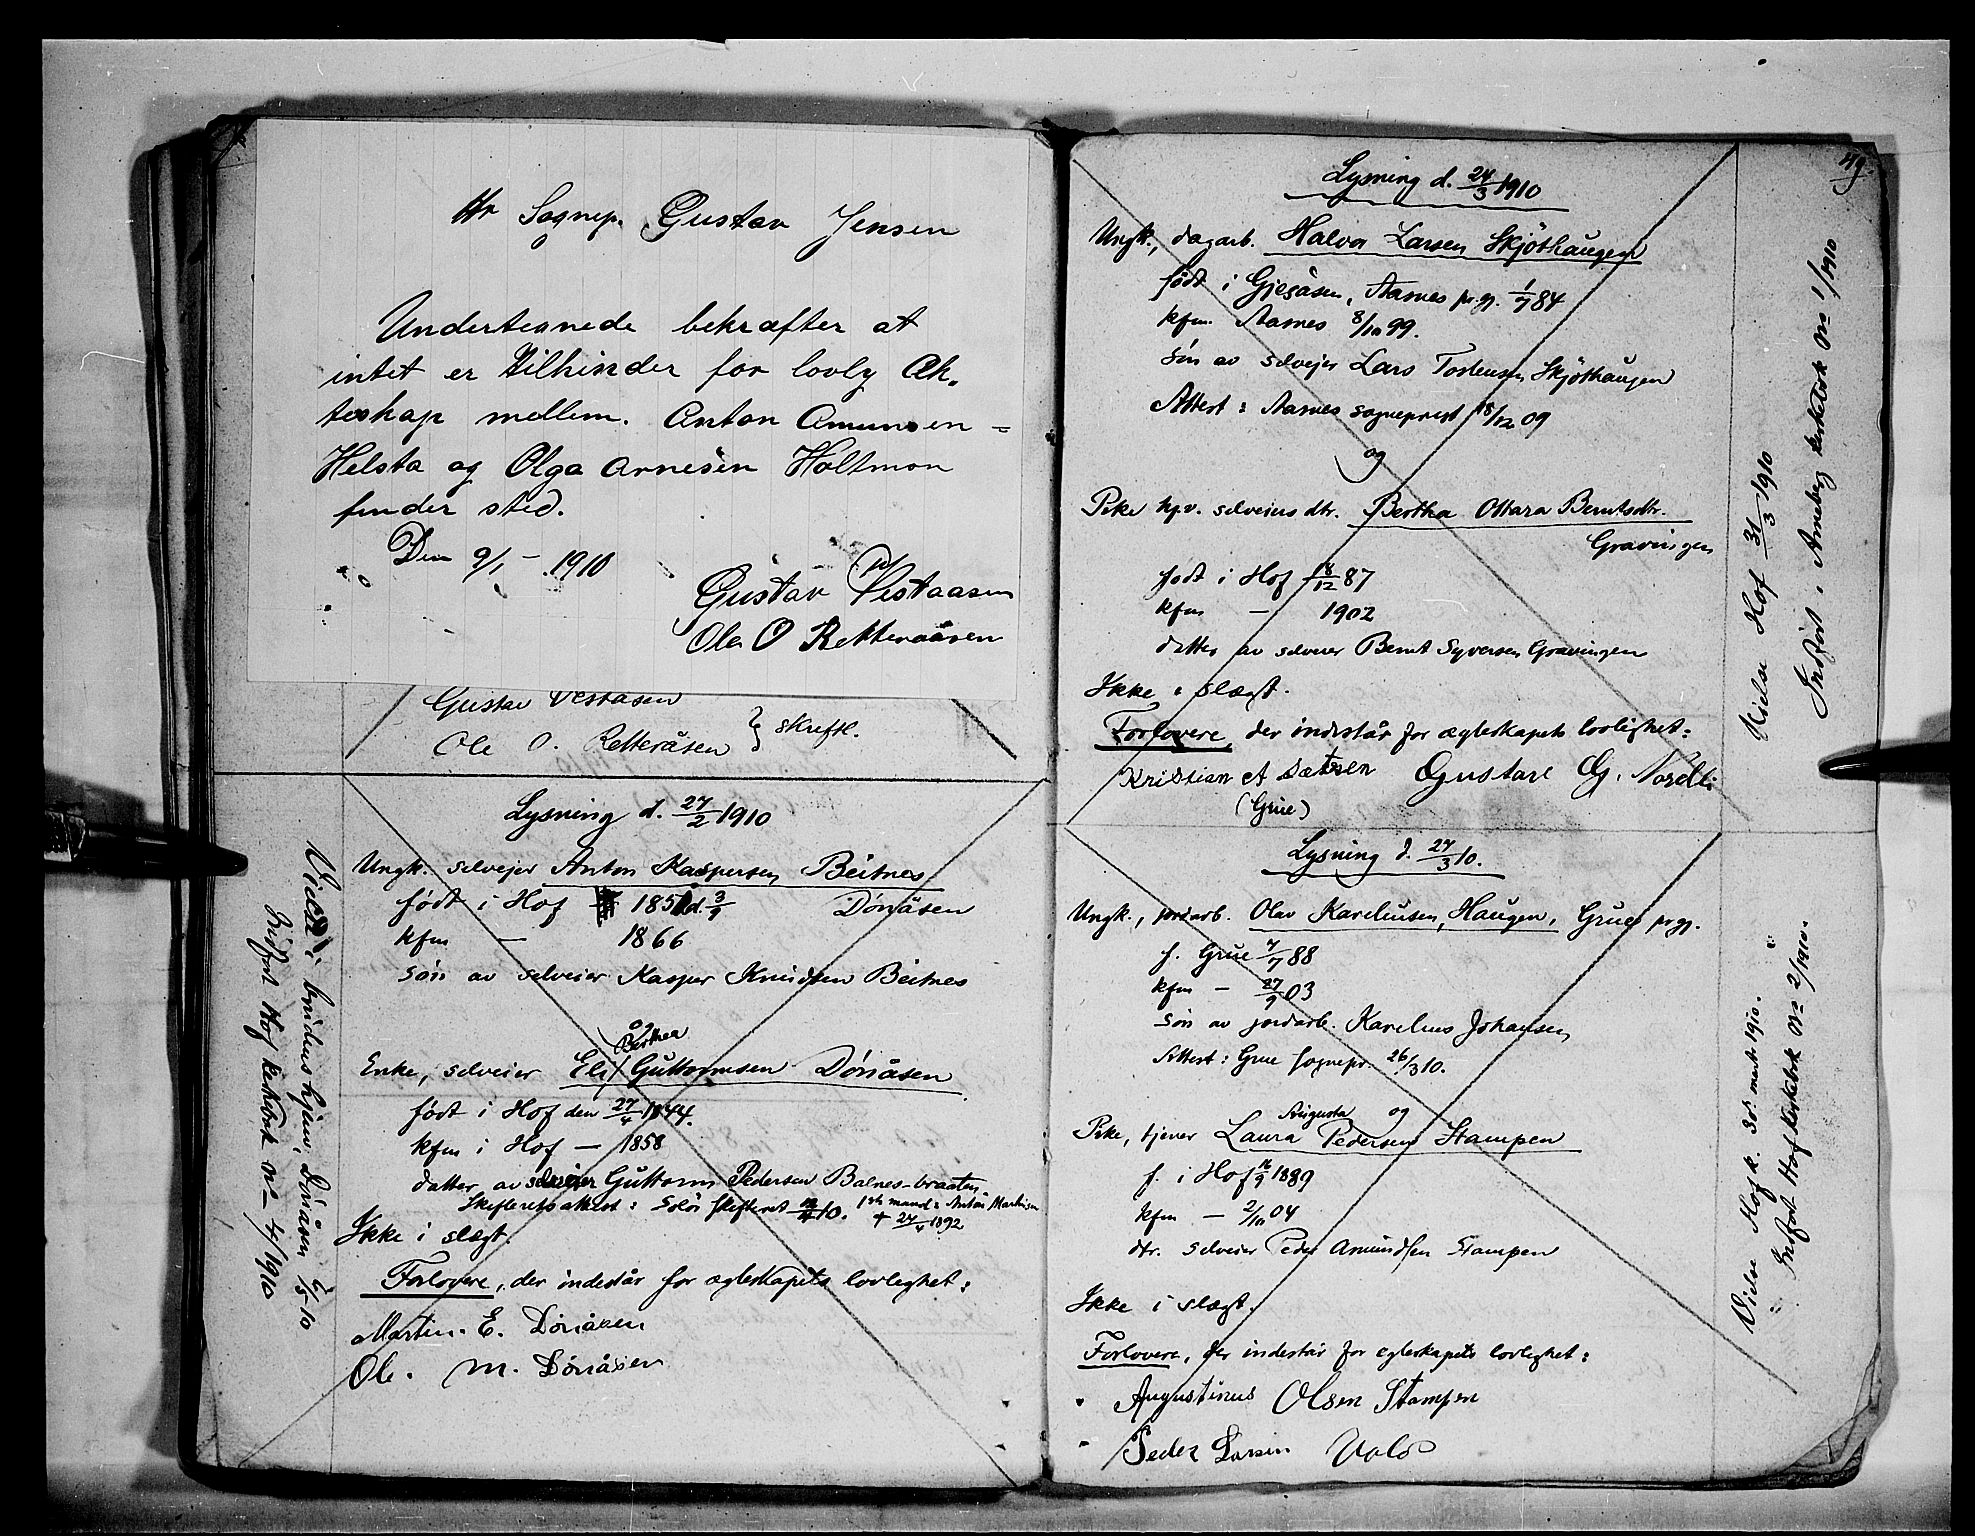 Hr Sognep. Gustav Jensen
Undertegnede bekræfter at
intet er tilhinder for lovlig Æk-
teskap mellem. Anton Amunsen -
Helsta og Olga Arnesen Holtmon
finder sted.
Den 9/1 - 1910
Gustav Vestaasen
Ole O Retteraasen
Gustav Vestaasen
Ole O. Retteråsen } skriftl.
Lysning d. 27/2 1910
Ungk. selveier Anton Kaspersen Beitnes
født i Hof 1851 d. 3/9 Döråsen
kfm — 1866
sön av selveier Kasper Knudsen Beitnes
og
Berthea
Enke, selveier Eli Guttormsen Döråsen
født i Hof den 27/4 1844.
kfm i Hof — 1858
datter av selveier Guttorm Pedersen Balnes-braaten
Skifteretsattest: Solör Skifteret 10. 1ste mand: Anton Martinsen
+ 24/4 1892
Ikke i slægt.
Forlovere, der indestår for ægteskapets lovlighet:
Martin. E. Döråsen
Ole. M. Döråsen
Viede i brudens hjem, Döråsen 5/5 10
Indført Hof kirkebok No 4/1910
49.
Lysning d. 24/3 1910
Ungk., dagarb. Halvor Larsen Skjöthaugen
født i Gjesåsen, Aasnes pr.gj. 1/7 84
kfm. Aasnes 8/10 99.
sön av selveier Lars Torstensen Skjöthaugen
Attest: Aasnes sogneprest 18/12 09
og
Pike hjv. selveiers dtr. Bertha Ottara Berntsdtr.
Gravingen
født i Hof 18/12 87
kfm — 1902
datter av selveier Bernt Syversen Gravingen
Ikke i slægt.
Forlovere der indestår for ægteskapets lovlighet:
Kristian A Sætren Gustav G. Nordli
(Grue)
Vielse Hof 31/3 1910
Indført i Arneberg kirkebok No 1/1910
Lysning d. 24/3 10.
Ungk., jordarb. Olav Kareliusen, Haugen, Grue pr.gj.
f. Grue 4/7 88
kfm — 27/9 03
sön av jordarb. Karelius Johansen
Attest: Grue sognepr. 26/3 10.
og
Augusta
Pike, tjener Laura Pedersen Stampen
f. i Hof 16/9 1889
kfm — 2/10 04
dtr. selveier Peder Amundsen Stampen
Ikke i slægt.
Forlovere, der indestår for ægteskapets lovlighet:
Augustinus Olsen Stampen
Peder Larsen Vold
Vielse Hof k. 30. marts 1910.
Indført Hof kirkebok No 2/1910.